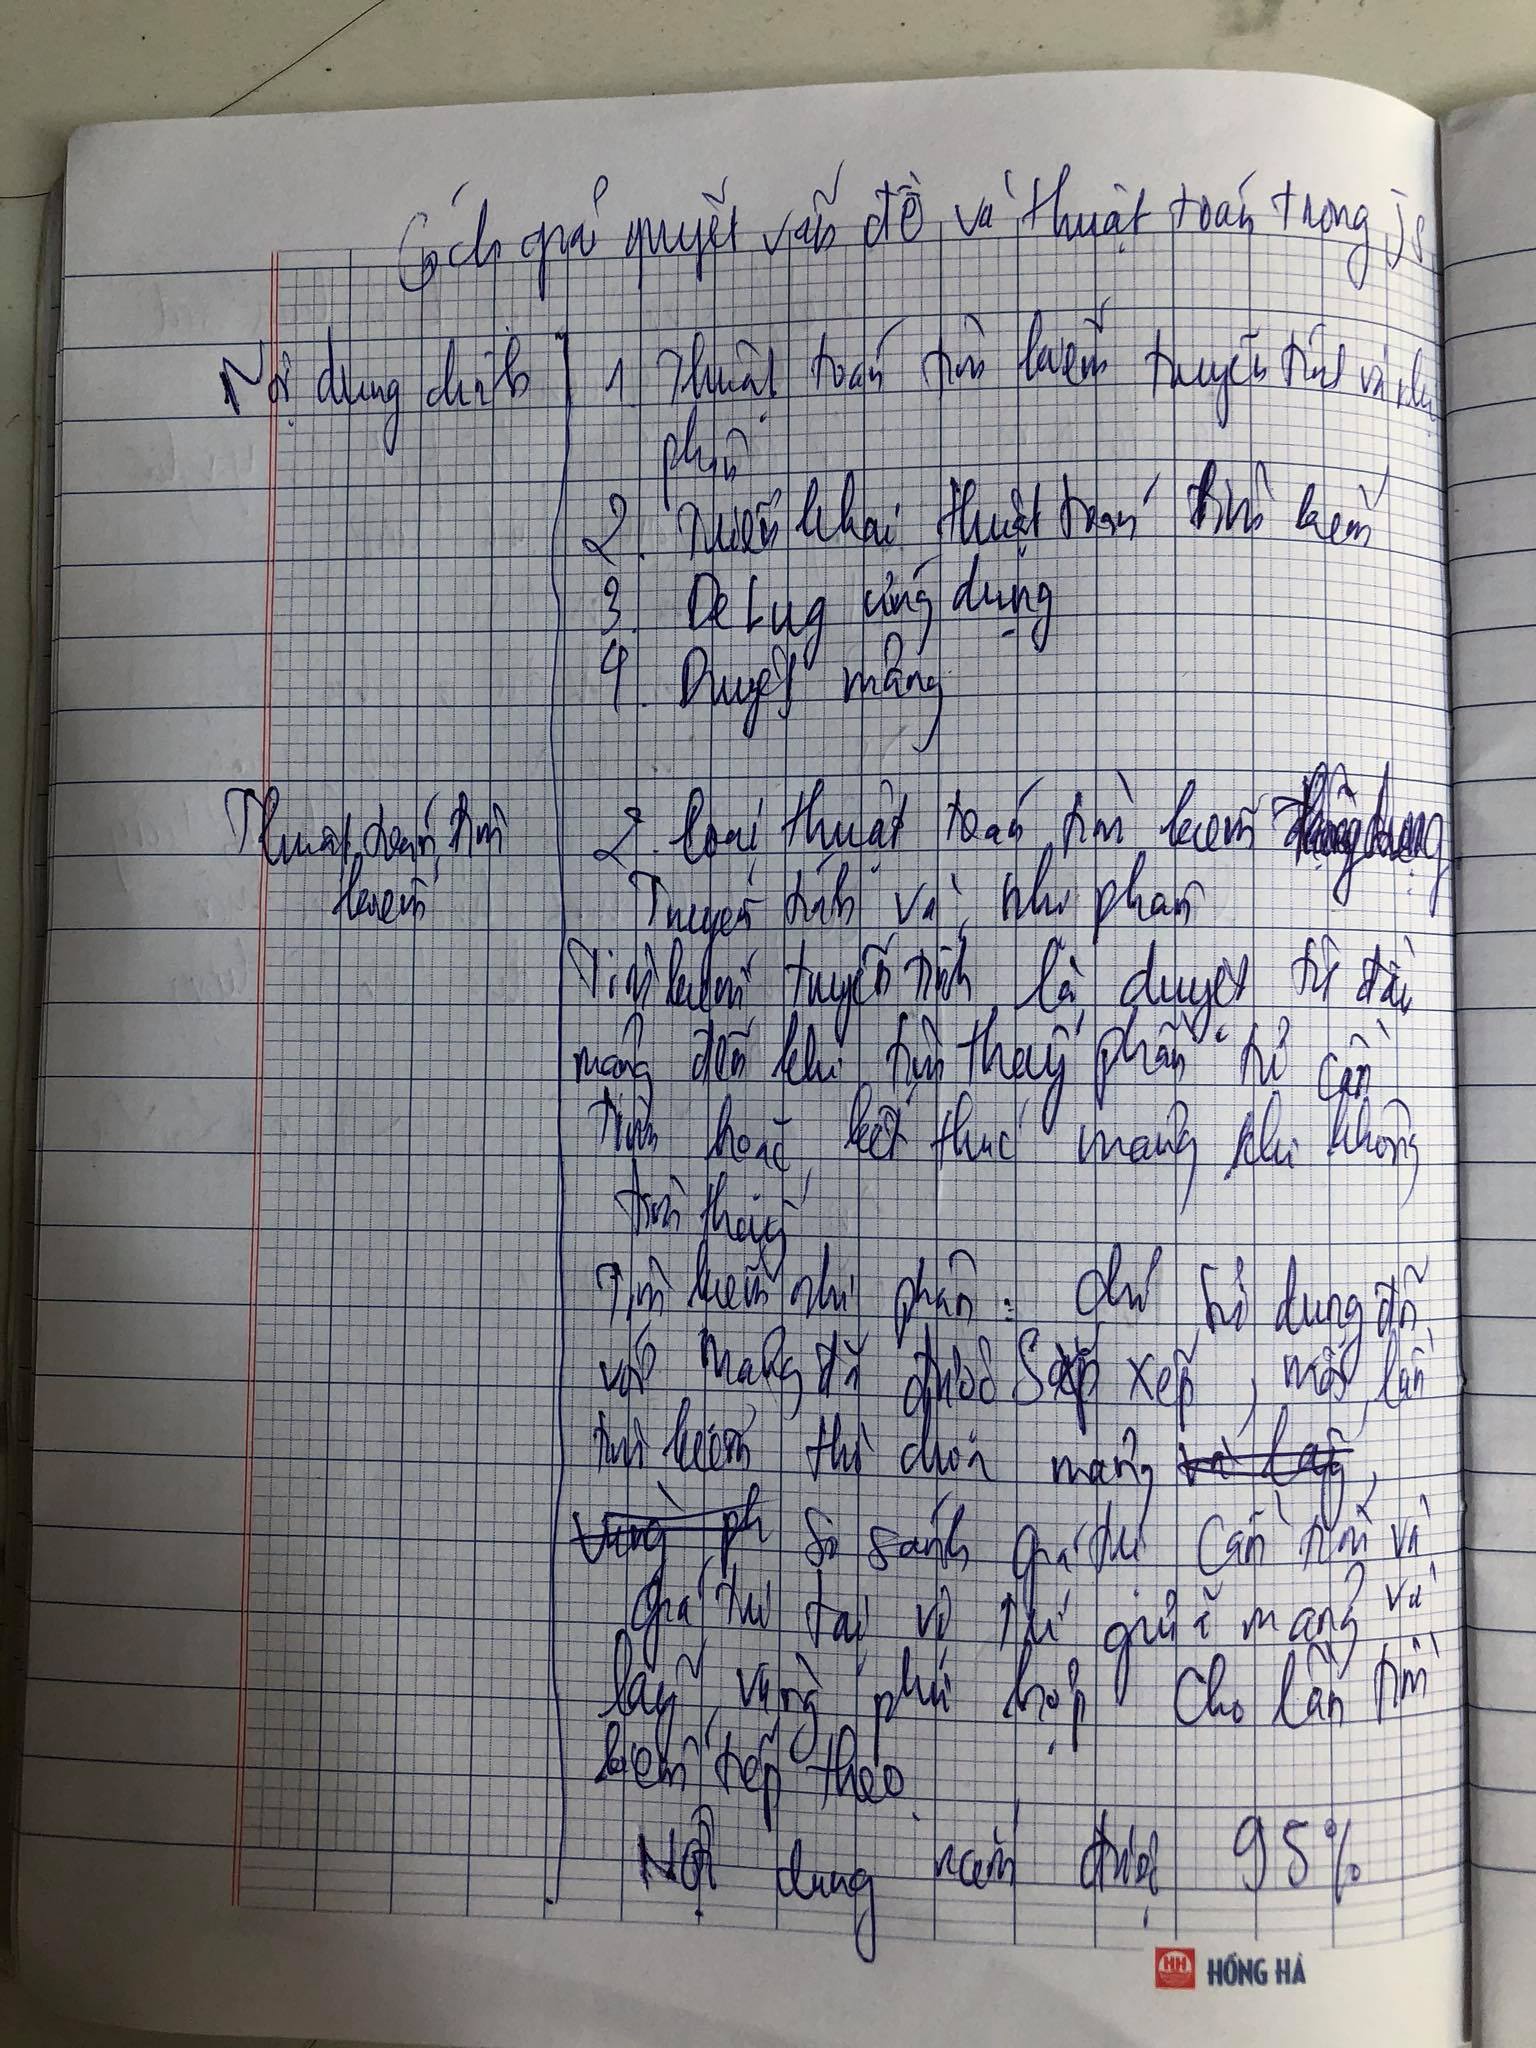 Cách giải quyết vấn đề và thuật toán trong js
Nội dung chính 1. Thuật toán tìm kiếm tuyến tính và nhị
phân
2. Triển khai thuật toán tìm kiếm
3. Debug ứng dụng
4. Duyệt mảng
Thuật toán tìm 2 loại thuật toán tìm kiếm
kiếm Tuyến tính và nhị phân
Tìm kiếm tuyến tính là duyệt từ đầu
mảng đến khi tìm thấy phần tử cần
tìm hoặc kết thúc mảng khi không
tìm thấy
Tìm kiếm nhị phân: chỉ sử dụng đối
với mảng đã được sắp xếp, mỗi lần
tìm kiếm thì chia mảng và lấy,
vùng ph so sánh giá trị cần tìm và
giá trị tại vị trí giữa mảng và
lấy vùng phù hợp cho lần tìm
kiếm tiếp theo.
Nội dung nắm được 95%
HỒNG HÀ